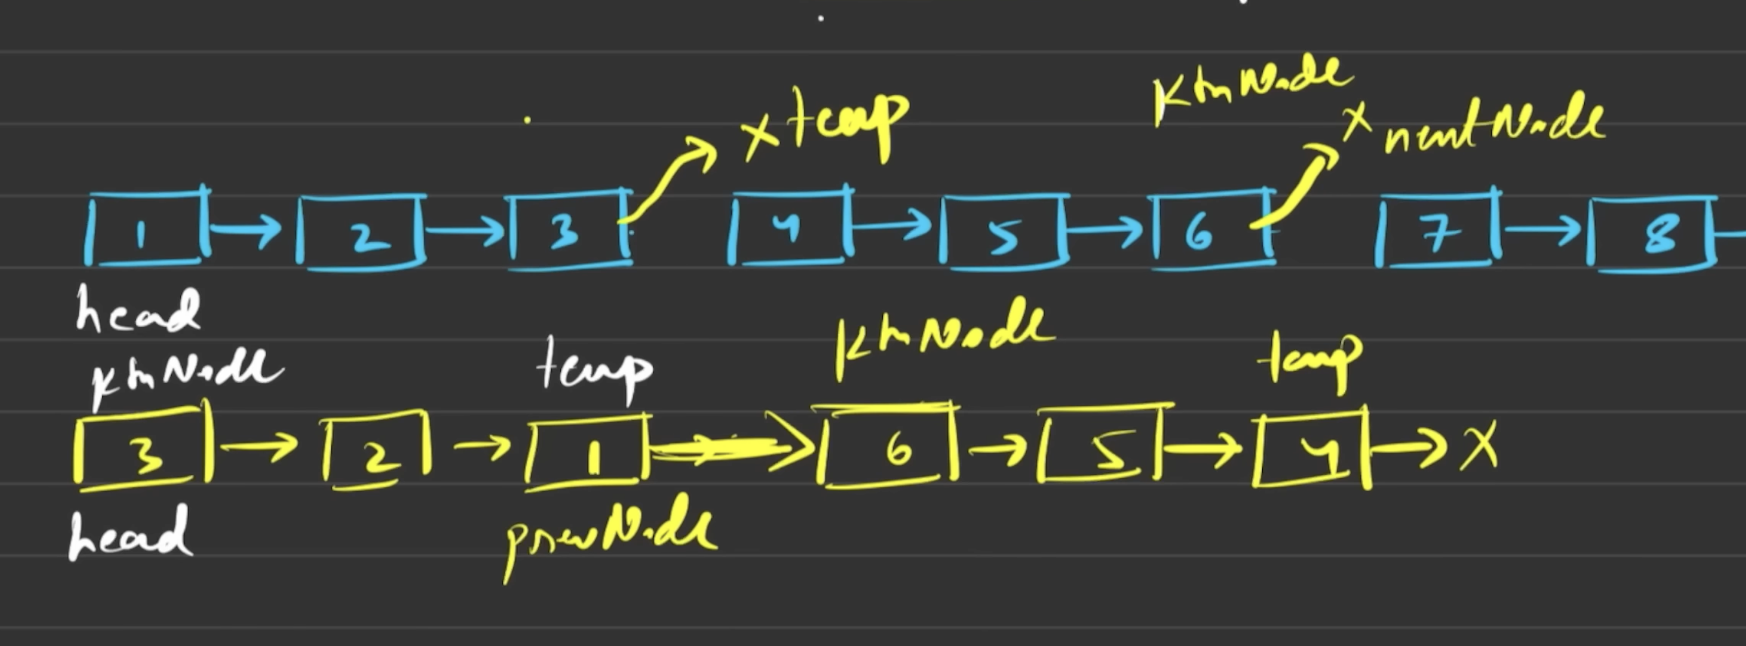 kthNode
x temp
x nextNode
1 → 2 → 3 4 → 5 → 6 7 → 8
head
kthNode temp kthNode temp
3 → 2 → 1 → 6 → 5 → 4 → X
head prevNode